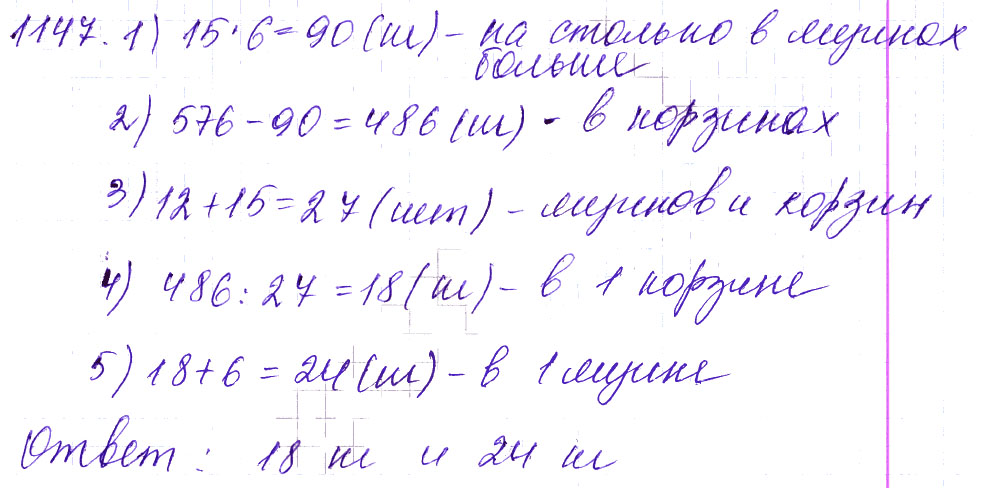 1147. 1) 15·6=90(ш) – на столько в ящиках
больше
2) 576-90=486(ш) - в корзинах
3) 12+15=27(шт) – ящиков и корзин
4) 486:27=18(ш) – в 1 корзине
5) 18+6=24(ш) – в 1 ящике
Ответ: 18 ш и 24 ш